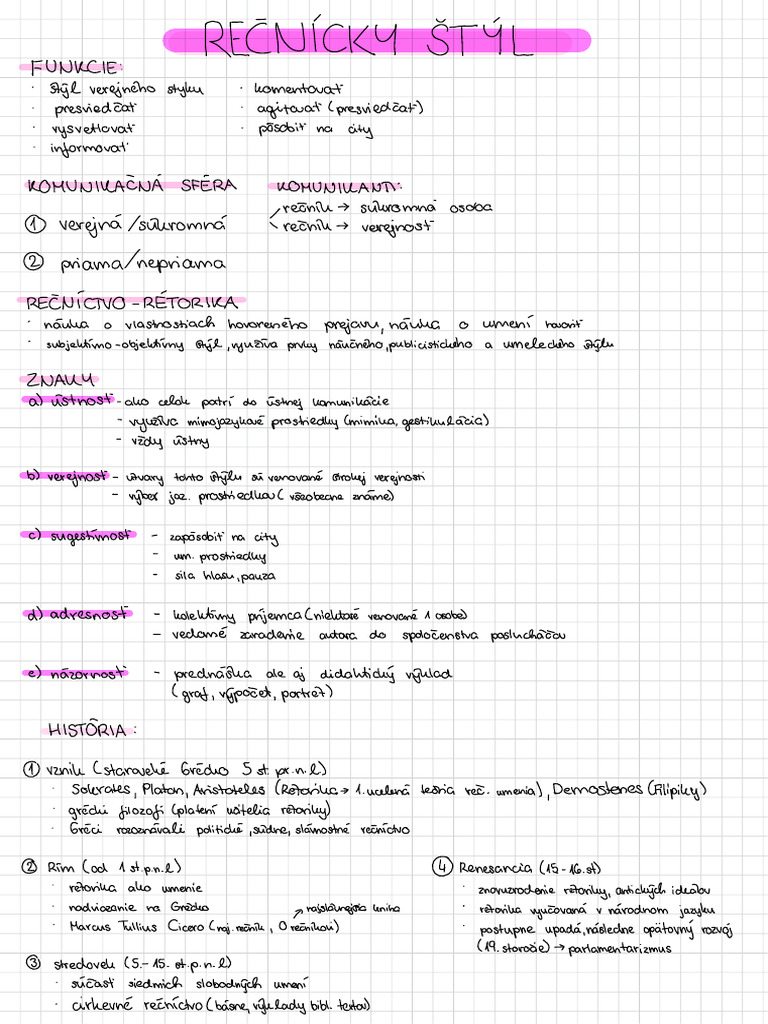 REČNÍCKY ŠTÝL
FUNKCIE:
· štýl verejného styku
· presviedčať
· vysvetlovať
· informovať
· komentovať
· agitovať (presviedčať)
· pôsobiť na city
KOMUNIKAČNÁ SFÉRA
① verejná/súkromná
② priama/nepriama
KOMUNIKANTI:
rečník → súkromná osoba
rečník → verejnosť
REČNÍCTVO - RÉTORIKA
· náuka o vlastnostiach hovoreného prejavu, náuka o umení hovoriť
· subjektívno-objektívny štýl, využíva prvky náučného, publicistického a umeleckého štýlu
ZNAKY
a) ústnosť - ako celok patrí do ústnej komunikácie
- využíva mimojazykové prostriedky (mimika, gestikulácia)
- vždy ústny
b) verejnosť - útvary tohto štýlu sú venované širokej verejnosti
- výber jaz. prostriedkov (všeobecne známe)
c) sugestívnosť - zapôsobiť na city
- um. prostriedky
- sila hlasu, pauza
d) adresnosť - kolektívny príjemca (niektoré venované 1 osobe)
- vedomé zaradenie autora do spoločenstva poslucháčov
e) názornosť - prednáška ale aj didaktický výklad
(graf, výpočet, portrét)
HISTÓRIA:
① vznik (staroveké Grécko 5 st. pr. n. l)
· Sokrates, Platon, Aristoteles (Rétorika → 1. ucelená teória reč. umenia), Demostenes (Filipiky)
· grécki filozofi (platení učitelia rétoriky)
· Gréci rozoznávali politické, súdne, slávnostné rečníctvo
② Rím (od 1 st. p. n. l)
· rétorika ako umenie
· nadviazanie na Grécko
· Marcus Tullius Cicero (naj. rečník, O rečníkovi) ↗ najslávnejšia kniha
③ stredovek (5. - 15. st. p. n. l)
· súčasť siedmich slobodných umení
· cirkevné rečníctvo (básne, výklady bibl. textov)
④ Renesancia (15 - 16. st)
· znovuzrodenie rétoriky, antických ideálov
· rétorika vyučovaná v národnom jazyku
· postupne upadá, následne opätovný rozvoj
(19. storočie) → parlamentarizmus